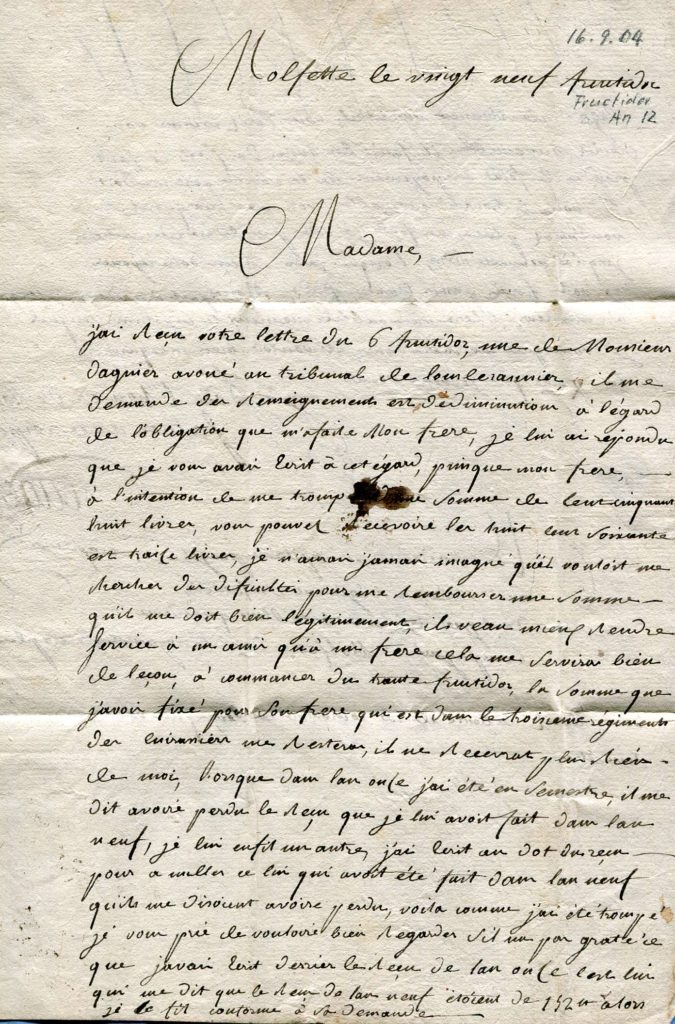 16.9.04
Molfette le vingt neuf fructidor
Fructidor
An 12
Madame,
j'ai Reçu votre lettre du 6 fructidor, une de Monsieur
dagnier avoué au tribunal de il me
demande des Renseignements est de diminution à l'égard
de l'obligation que m'a faite Mon frere, je lui ai répondu
que je vous avais Ecrit à cet égard, puisque mon frere,
à l'intention de me tromp somme de Cent cinquant
huit livres, vous pouvez Recevoire les huit cent soixante
est traise livres, je n'aurai jamais imaginé qu'il vouloit me
chercher des dificultés pour me Rembourser une somme
qu'il me doit bien légitimement, ils veau mieux Rendre
service à un amis qu'à un frere cela me servira bien
de leçon, à commancer du trante fructidor, la somme que
j'avois fixé pour Son frere qui est dans le troisieme régiments
des cuirassiers me Restera, il ne Recevrat plus Rién
de moi, lorsque dans lan onze j'ai été en semestre, il me
dit avoire perdu le Reçu que je lui avoit fait dans lan
neuf, je lui enfit un autre, j'ai Ecrit au dot du recu
pour anuller ce lui qui avoit été fait dans lan neuf
quils me disoient avoire perdu, voila comme j'ai été trompé
je vous prie de vouloire bien Regarder s'il na pas graté ce
que javais Ecrit derrier le Reçu de lan onze c'est lui
qui me dit que le Recu de lan neuf étoient de 152 alors
je le fit conforme à sa demande